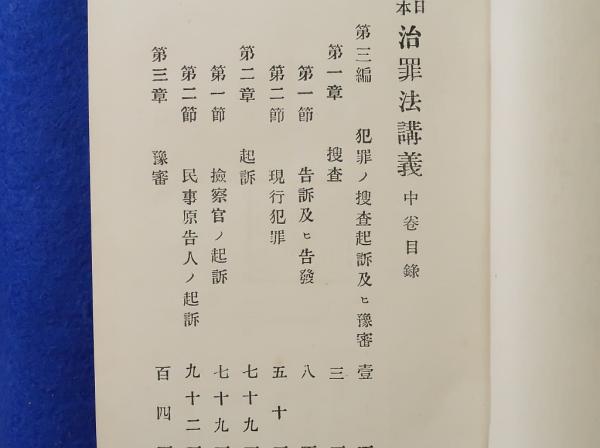 日本
治罪法講義 中卷目錄
第三編 犯罪ノ搜査起訴及ヒ豫審 壹
第一章 搜査 三
第一節 告訴及ヒ告發 八
第二節 現行犯罪 五十
第二章 起訴 七十九
第一節 撿察官ノ起訴 七十九
第二節 民事原告人ノ起訴 九十二
第三章 豫審 百四